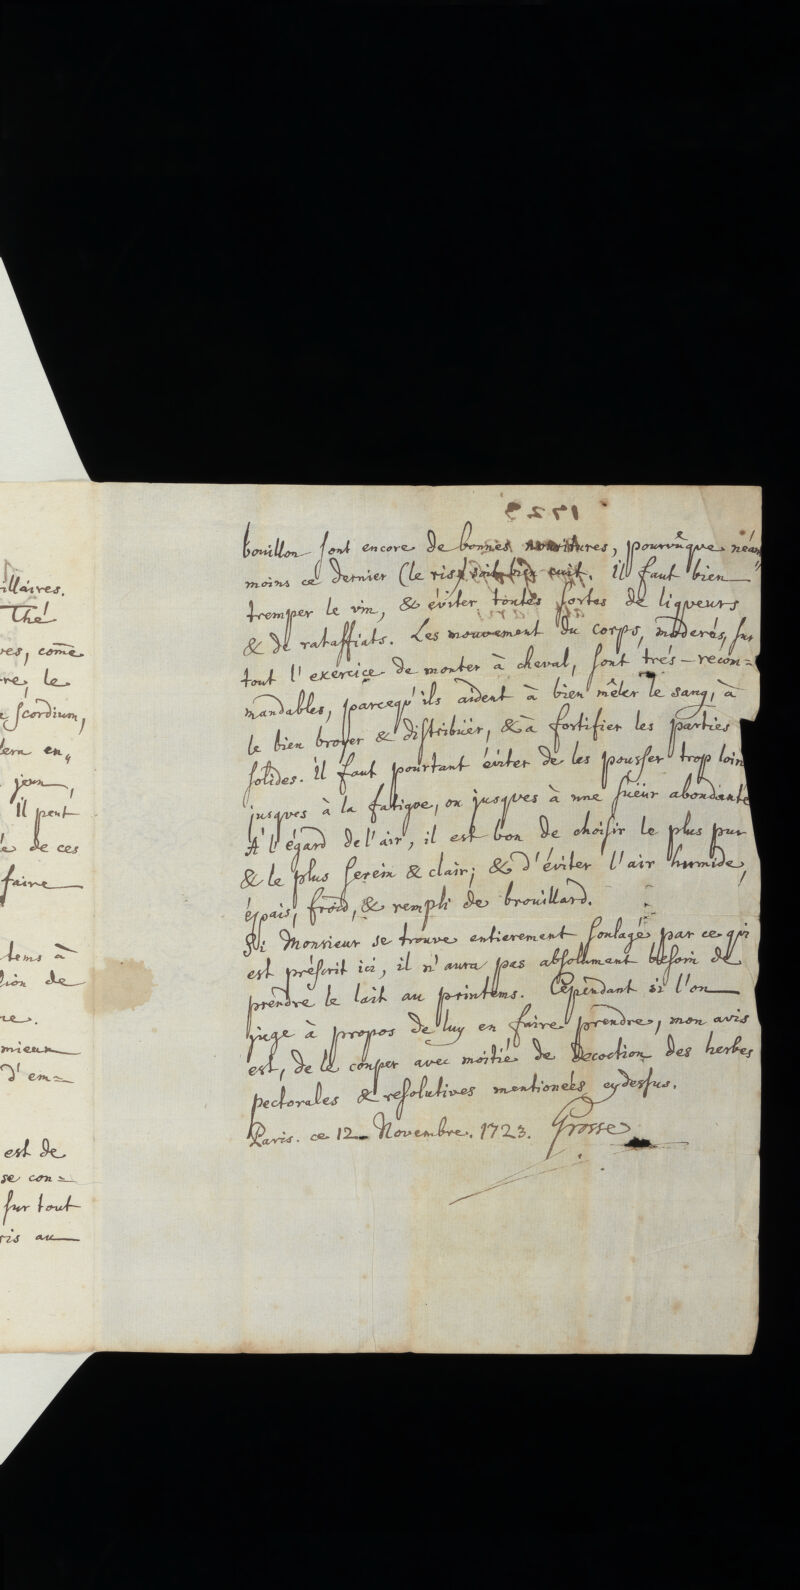 illaires.
Thé
ves, com̃e
re, le
scordium,
dern en„
jeun,
Il peut
e de ces
faire
tems à
sion de
re.
mieux
d'em=
est de
se con=
sur tout
ris au
1723
bouillon sont encore de bonnes nouritures, pourvûque néan„
moins ce dernier (le ris) soit bien cuit. Il faut bien
tremper le vin, & éviter toutes sortes de liqveurs
& de rataffiats. Les mouvement du corps, moderés, sur
tout l'exercice de monter à cheval, sont trés-recom=
mandables, parceqv'ils aident à bien mêler le sang, à
le bien broyer & distribüer, & à fortifier les parties
solides. Il faut pourtant éviter de les pousser trop loin
jusqves à la fatigve, ou jusqves à une süeür abondante
A l'égard de l'air, il est bon de choisir le plus pur
& le plus serein & clair; & d'éviter l'air humide,
épais, froid, & rempli de brouillard.
Si Monsieur se trouve entierement soulagé par ce qvi
est préscrit ici, il n'aura pas absolument besoin de
prendre le lait au printems. Cependant si l'on
juge à propos de luy en faire prendre, mon avis
est, de le couper avec moitié de decoction des herbes
pectorales & resolutives mentionées cydessus.
Paris. ce 12 Novembre. 1723. Grosse